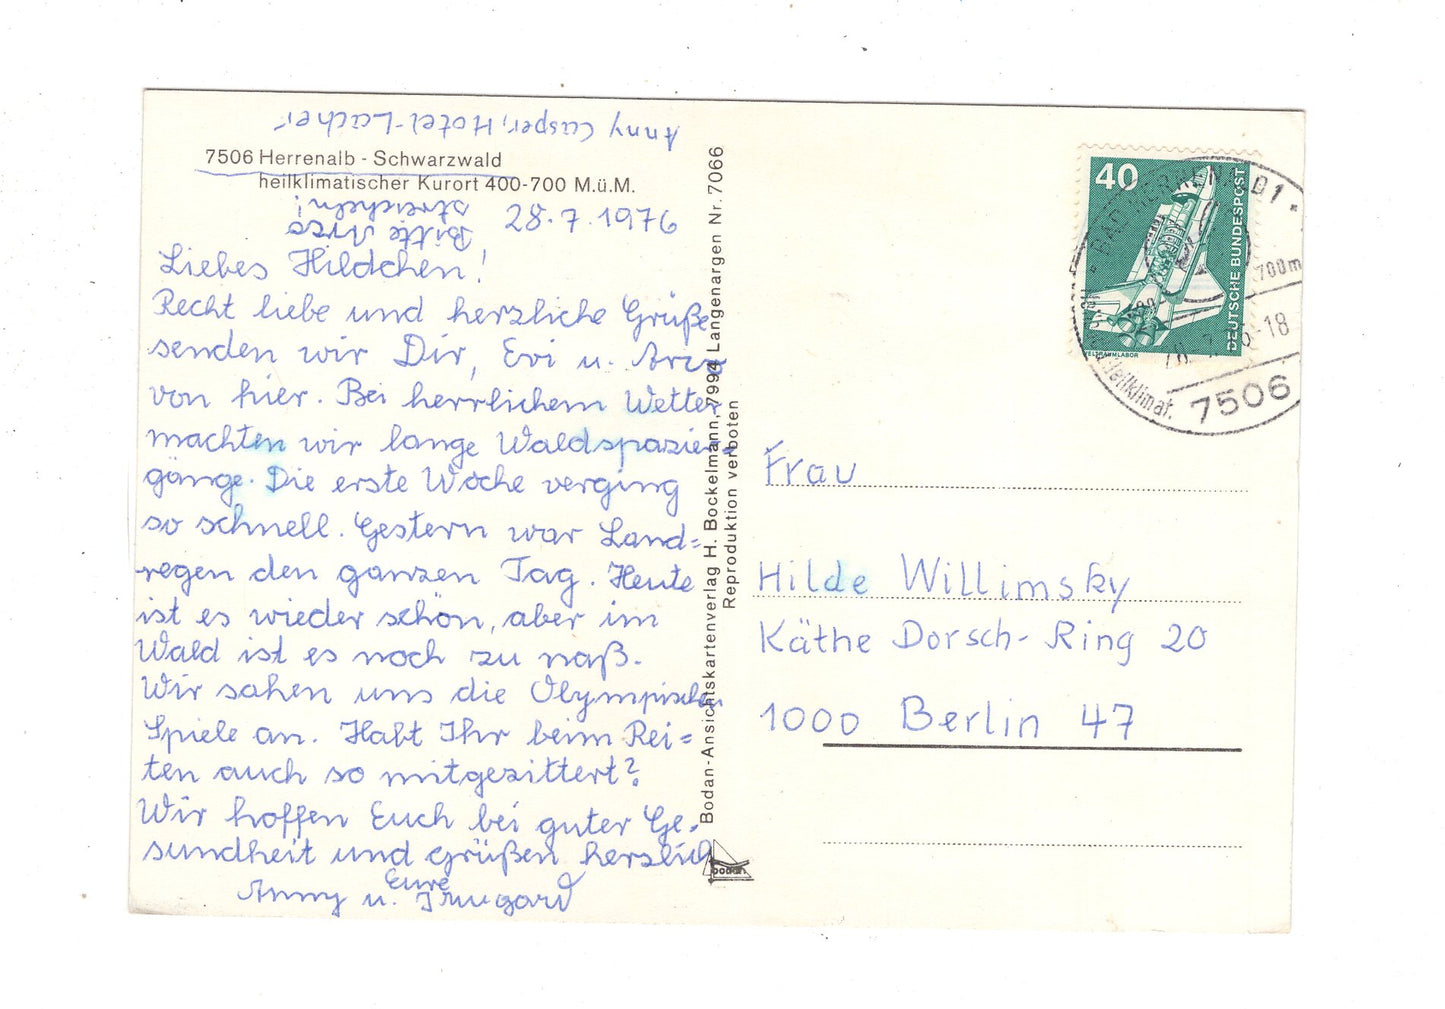 Anny Casper, Hotel-Lacher
7506 Herrenalb - Schwarzwald
heilklimatischer Kurort 400-700 M.ü.M.
Bitte Arco
streicheln!
28.7.1976
Liebes Hildchen!
Recht liebe und herzliche Grüße
senden wir Dir, Evi u. Arco
von hier. Bei herrlichem Wetter
machten wir lange Waldspazier=
gänge. Die erste Woche verging
so schnell. Gestern war Land=
regen den ganzen Tag. Heute
ist es wieder schön, aber im
Wald ist es noch zu naß.
Wir sahen uns die Olympischen
Spiele an. Habt Ihr beim Rei=
ten auch so mitgezittert?
Wir hoffen Euch bei guter Ge-
sundheit und grüßen herzlich
Eure
Anny u. Irmgard
Bodan-Ansichtskartenverlag H. Bockelmann, 7994 Langenargen Nr. 7066
Reproduktion verboten
bodan
40
DEUTSCHE BUNDESPOST
WELTRAUMLABOR
BAD HERRENALB 1
700m
-18
Heilklimat.
7506
Frau
Hilde Willimsky
Käthe Dorsch-Ring 20
1000 Berlin 47